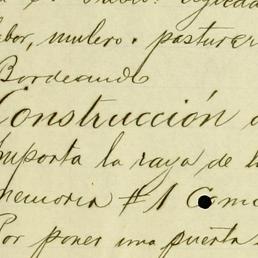 labor, mulero. pasturer
Bordeando
Construcción
Importa la raya de l
memoria #1 Como
Por poner una puerta